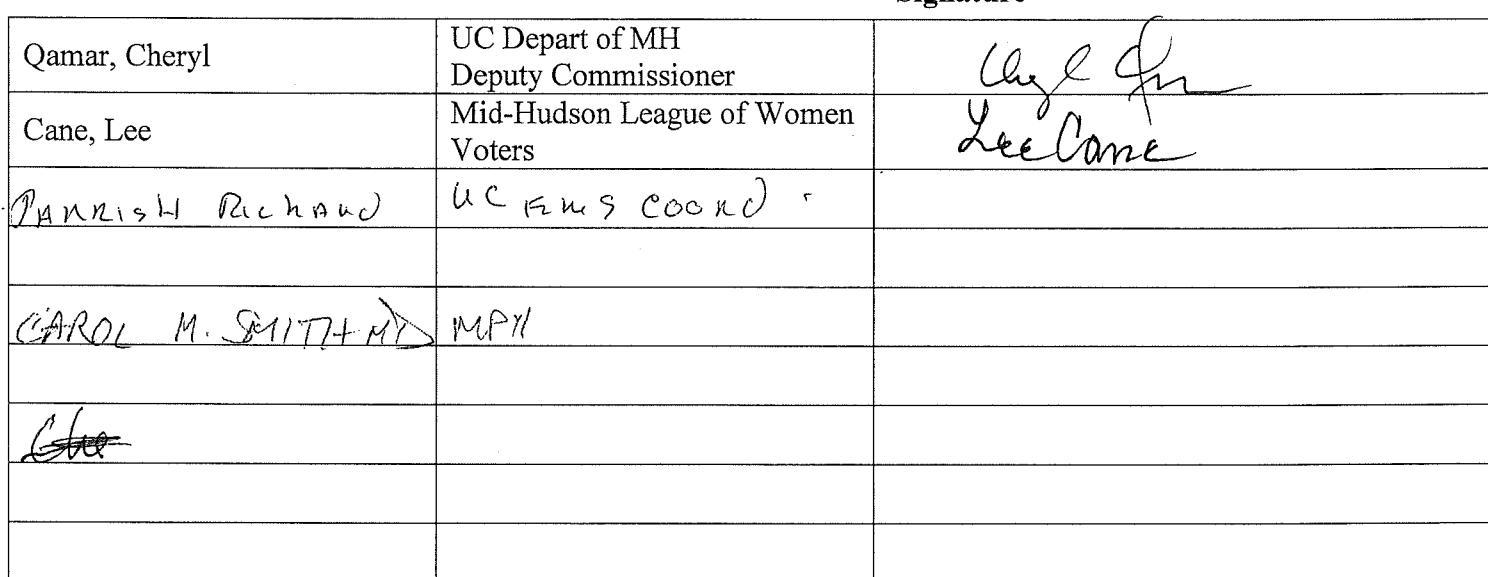 Signature
Qamar, Cheryl
UC Depart of MH
Deputy Commissioner
Cane, Lee
Mid-Hudson League of Women
Voters
Lee Cane
PARRISH RicHARD
UC EMS COORD
CAROL M. SMITH MD MPH